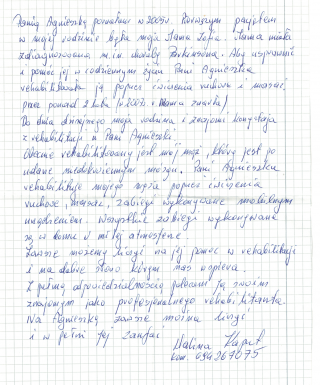 Panią Agnieszkę poznałam w 2005r. Pierwszym pacjentem
w mojej rodzinie była moja Mama Zofia. Mama miała
zdiagnozowaną m.in. chorobę Parkinsona. Aby usprawnić
i pomóc jej w codziennym życiu Pani Agnieszka
rehabilitowała ją poprzez ćwiczenia ruchowe i masaż,
przez ponad 2 lata (w 2007r. Mama zmarła)
Do dnia dzisiejszego moja rodzina i znajomi korzystają
z rehabilitacji u Pani Agnieszki.
Obecnie rehabilitowany jest mój mąż, który jest po
udarze niedokrwiennym mózgu. Pani Agnieszka
rehabilituje mojego męża poprzez ćwiczenia
ruchowe, masaże, zabiegi wykonywane mobilnymi
urządzeniami. Wszystkie zabiegi wykonywane
są w domu w miłej atmosferze.
Zawsze możemy liczyć na jej pomoc w rehabilitacji
i na dobre słowo którym nas wspiera.
Z pełną odpowiedzialnością polecam ją swoim
znajomym jako profesjonalnego rehabilitanta.
Na Agnieszkę zawsze można liczyć
i w pełni jej zaufać
Halina
kom. 694267075